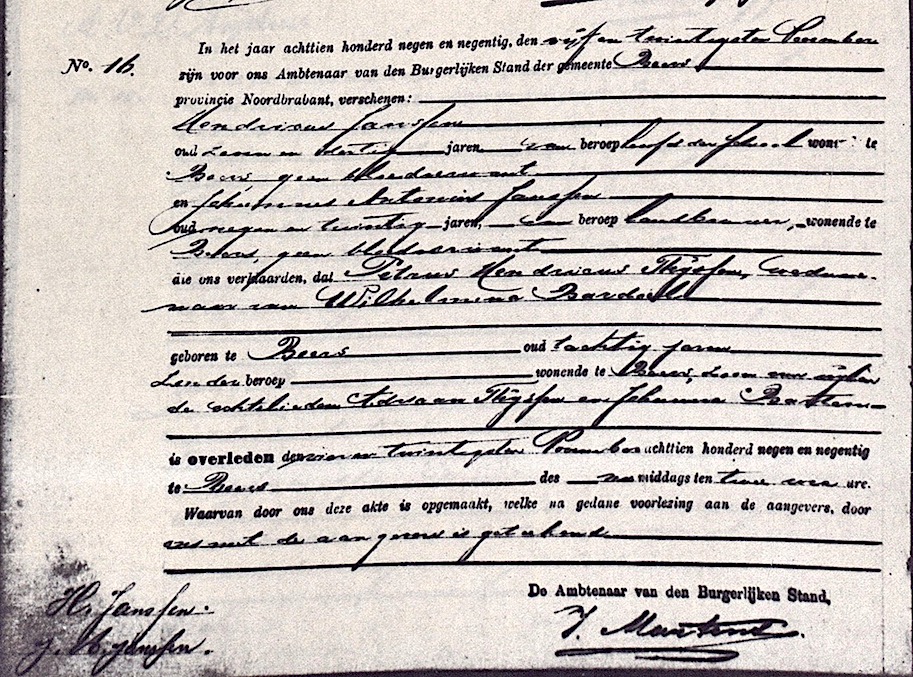 In het jaar achttien honderd negen en negentig, den vijf en twintigsten December
No. 16.
zijn voor ons Ambtenaar van den Burgerlijken Stand der gemeente Beers
provincie Noordbrabant, verschenen:
Hendricus Janssen
oud zeven en dertig jaren, van beroep hoofd der school wonende te
Beers, geen bloedverwant
en Johannes Antonius Janssen
oud negen en twintig jaren, van beroep landbouwer, wonende te
Beers, geen bloedverwant
die ons verklaarden, dat Petrus Hendricus Thijssen, weduwe-
naar van Wilhelmina
geboren te Beers oud tachtig jaren
zonder beroep wonende te Beers, zoon van wijlen
de echtelieden Adriaan Thijssen en Johanna
is overleden den vier en twintigsten achttien honderd negen en negentig
te Beers des na middags ten twee ure.
Waarvan door ons deze akte is opgemaakt, welke na gedane voorlezing aan de aangevers, door
ons met de aangevers is geteekend.
De Ambtenaar van den Burgerlijken Stand,
H. Janssen.
J. A. Janssen.